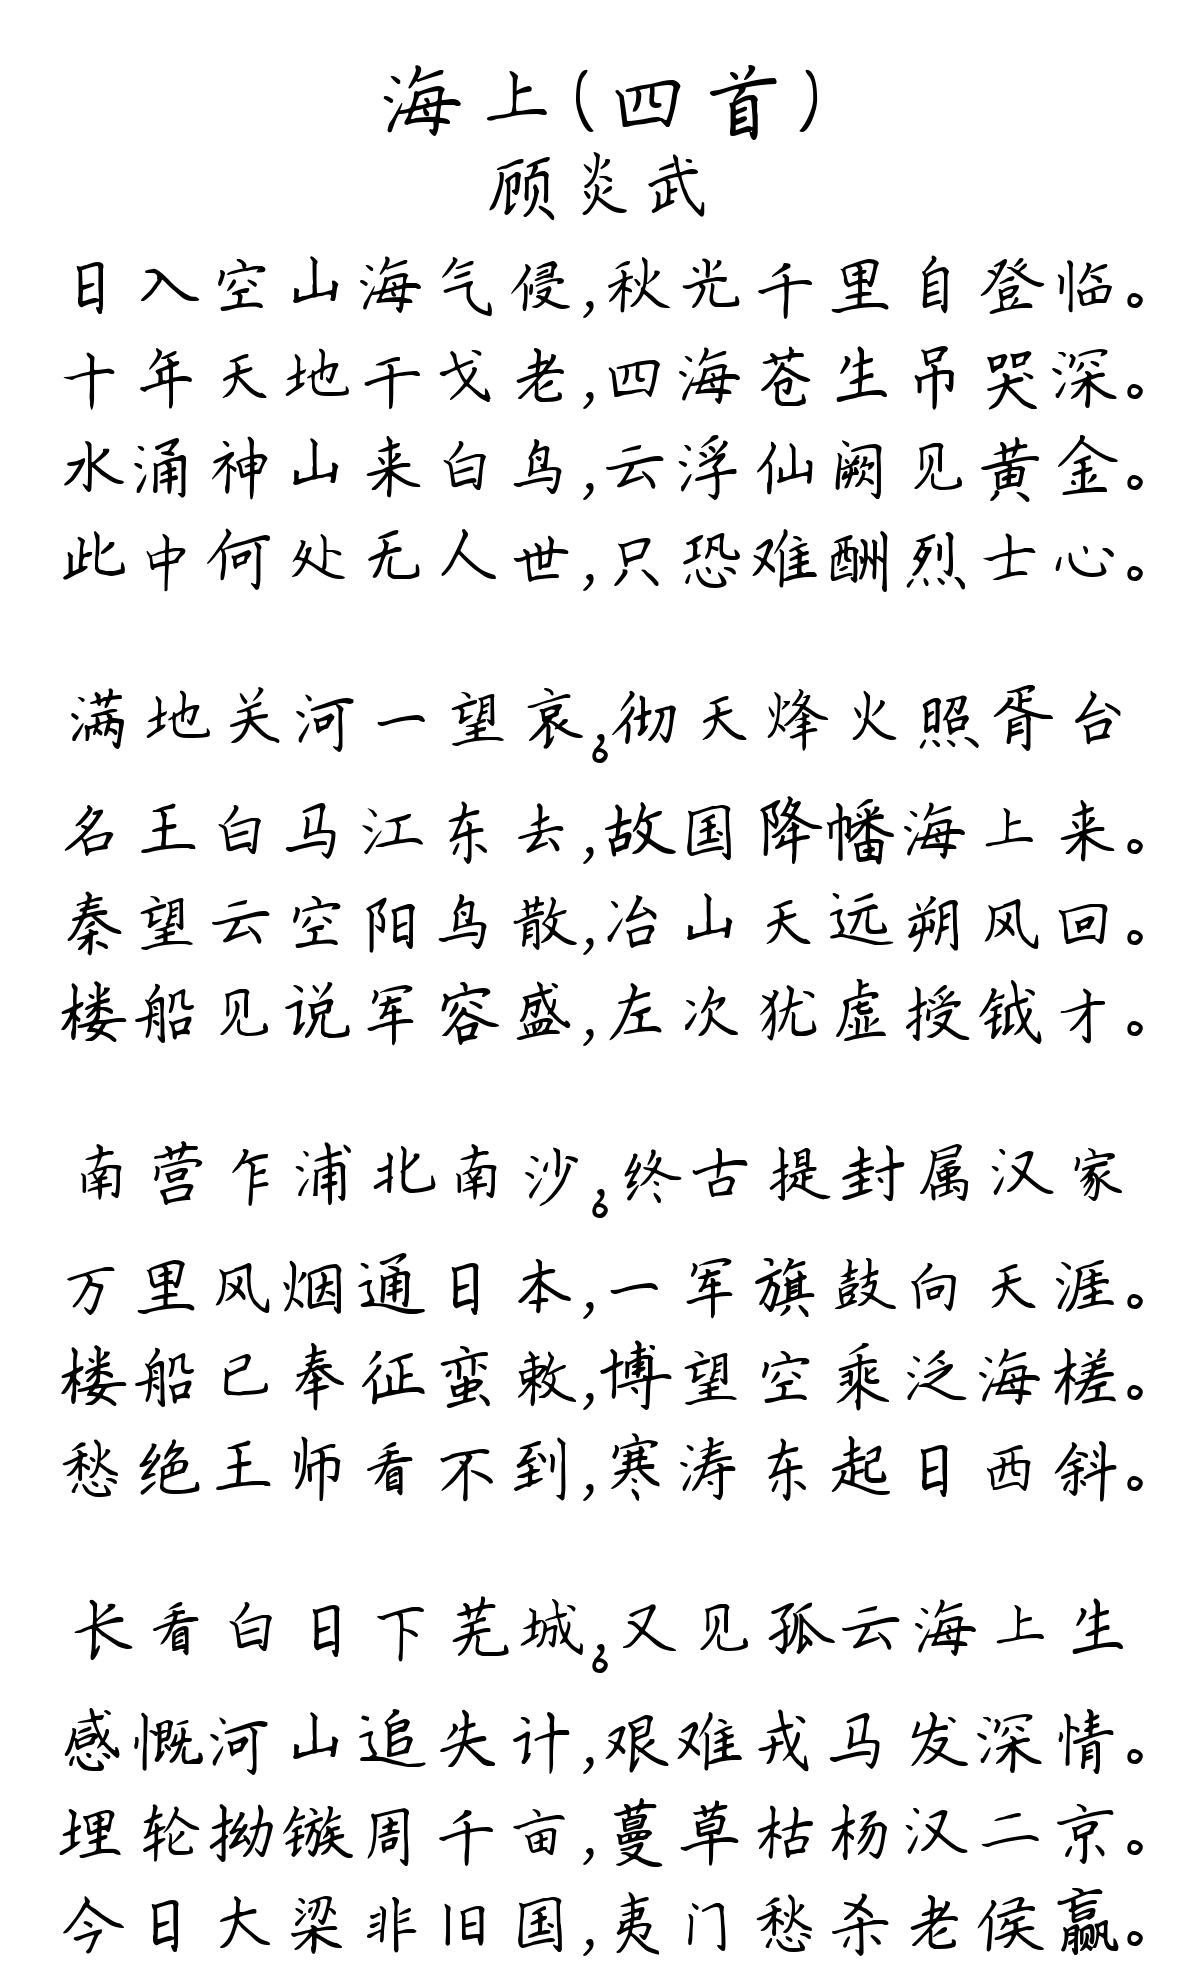 海上(四首)
顾炎武
日入空山海气侵,秋光千里自登临。
十年天地干戈老,四海苍生吊哭深。
水涌神山来白鸟,云浮仙阙见黄金。
此中何处无人世,只恐难酬烈士心。
满地关河一望哀,彻天烽火照胥台。
名王白马江东去,故国降幡海上来。
秦望云空阳鸟散,冶山天远朔风回。
楼船见说军容盛,左次犹虚授钺才。
南营乍浦北南沙,终古提封属汉家。
万里风烟通日本,一军旗鼓向天涯。
楼船已奉征蛮敕,博望空乘泛海槎。
愁绝王师看不到,寒涛东起日西斜。
长看白日下芜城,又见孤云海上生。
感慨河山追失计,艰难戎马发深情。
埋轮拗镞周千亩,蔓草枯杨汉二京。
今日大梁非旧国,夷门愁杀老侯赢。